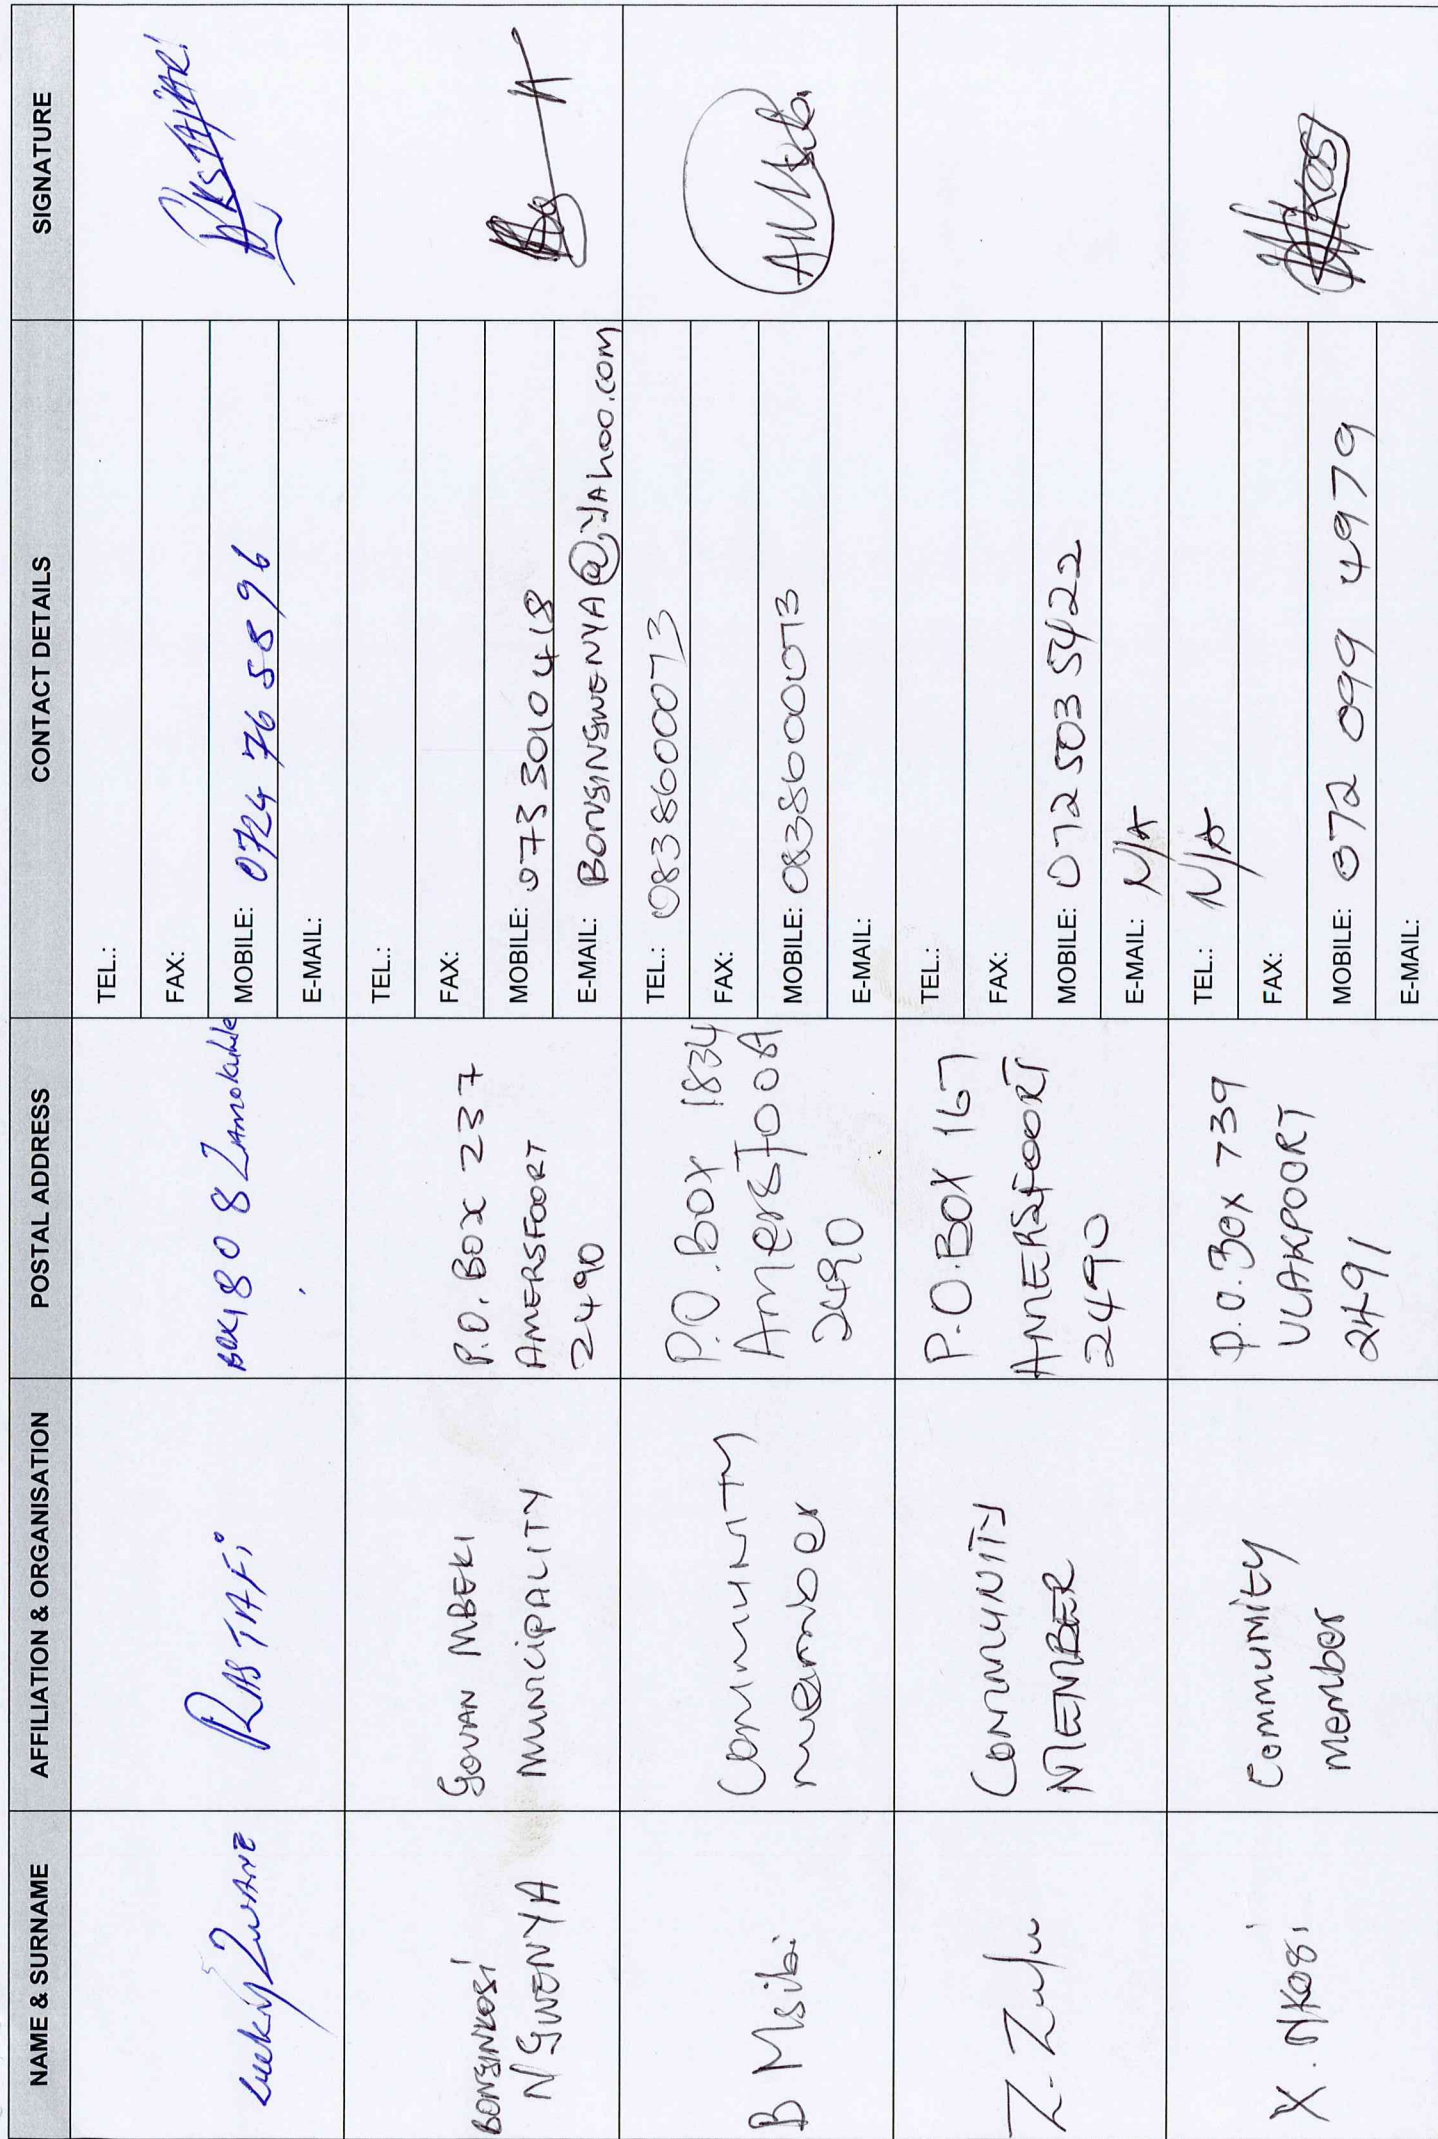 NAME & SURNAME
AFFILIATION & ORGANISATION
POSTAL ADDRESS
CONTACT DETAILS
SIGNATURE
Lucky Zwane
RASTAFi
BOX 1808 Zamokuhle
TEL.:
FAX:
MOBILE: 0724 76 58 96
E-MAIL:
BONGINKOSI
NGWENYA
GOVAN MBEKI
MUNICIPALITY
P.O. BOX 237
AMERSFOORT
2490
TEL.:
FAX:
MOBILE: 073 3010 418
E-MAIL: BONGINGWENYA@YAhoo.com
B Msibi
COMMUNITY
member
P.O. BOX 1834
Amersfoort
2490
TEL.: 0838600073
FAX:
MOBILE: 0838600073
E-MAIL:
Z. Zulu
COMMUNITY
MEMBER
P.O. BOX 167
AMERSFOORT
2490
TEL.:
FAX:
MOBILE: 072 503 5422
E-MAIL: N/A
X. Nkosi
Community
member
P.O. Box 739
VLAKPOORT
2491
TEL.: N/A
FAX:
MOBILE: 072 099 4979
E-MAIL: